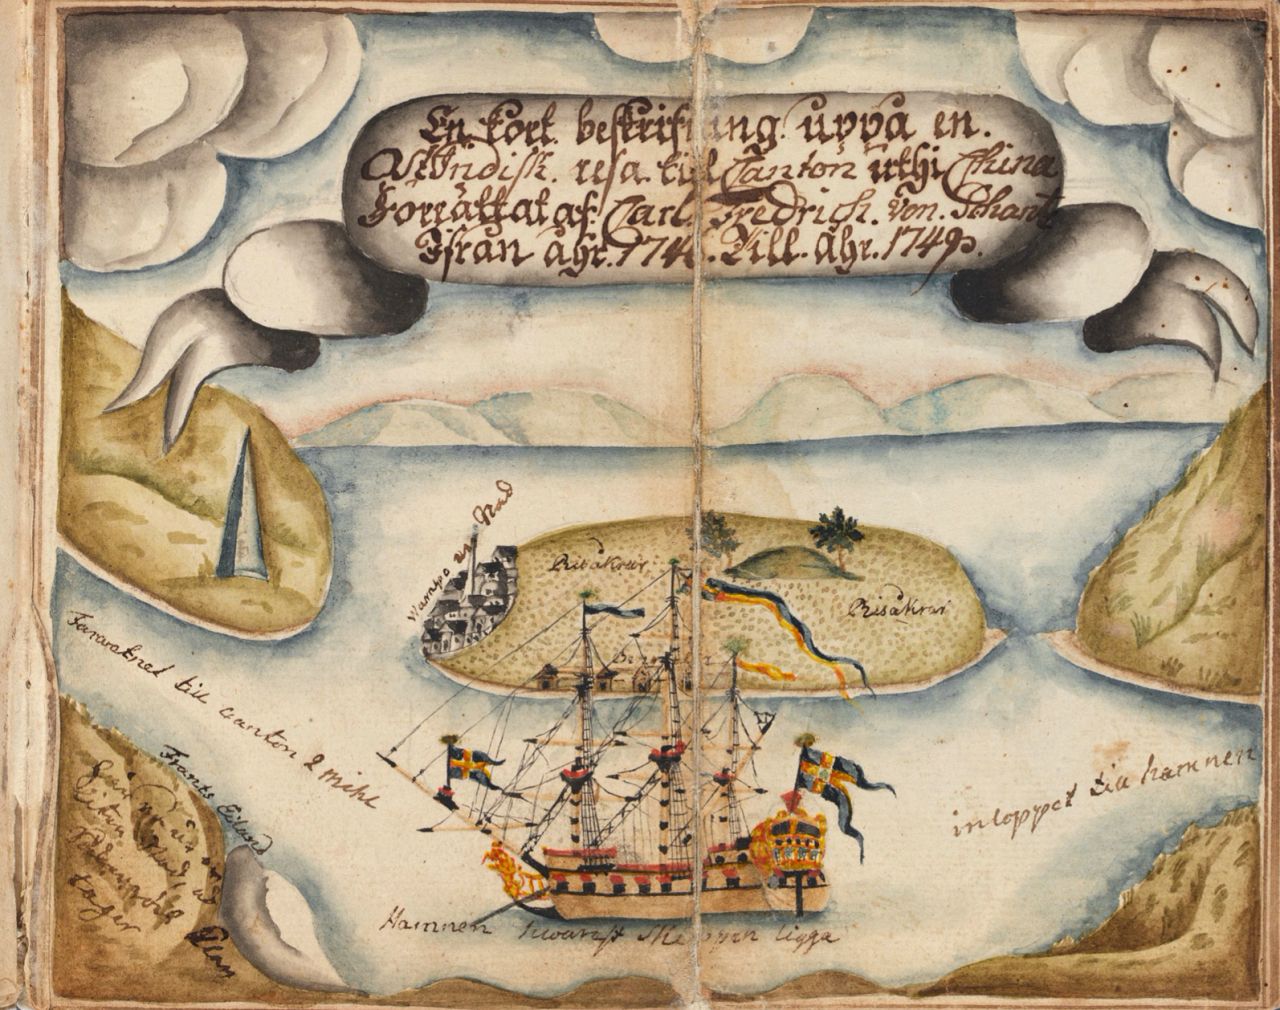 En kort beskrifning uppå en.
Ostindisk. resa. till Canton uthi China
Förrättat af Carl Fredrich. von. Schantz
Ifrån åhr. 1746. Till. åhr. 1749.
Wampo en Stad
Risåkrar
Risåkrar
Farwatnet till canton 2 mihl
Frants Eiland
inloppet till hamnen
Hamnen hwarest skeppen ligga